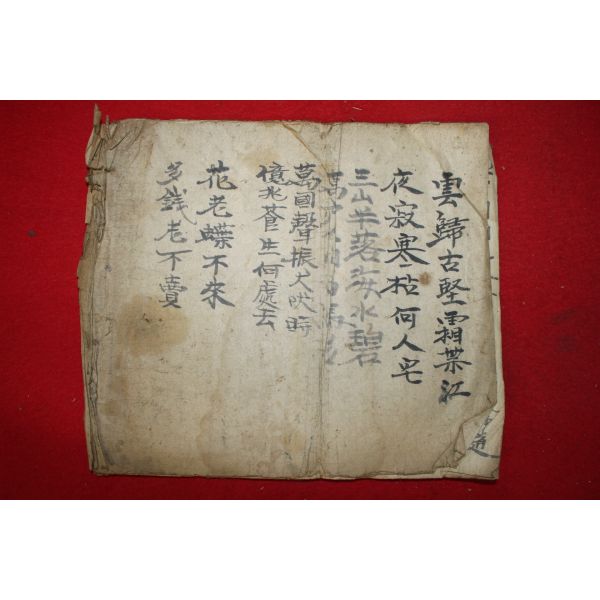 雲歸古堅霜葉江
夜寂寒枯何人宅
三山半落海水碧
萬國聲振大吠時
億兆蒼生何處去
花老蝶不來
多錢老不賣